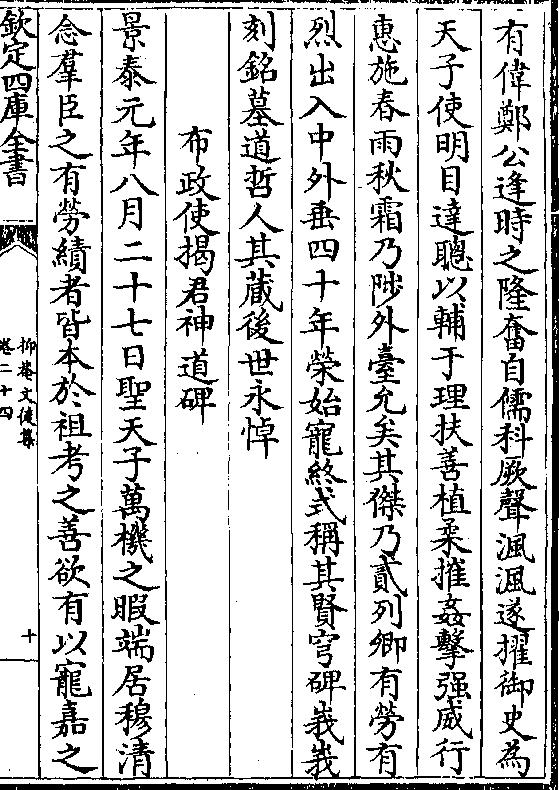 有偉鄭公逢時之隆奮自儒科厥聲渢渢遂擢御史為
天子使明目達聰以輔于理扶善植柔摧姦擊强威行
惠施春雨秋霜乃陟外臺允矣其傑乃貳列卿有勞有
烈出入中外垂四十年榮始寵終式稱其賢穹碑峩峩
刻銘墓道哲人其藏後世永悼
布政使揭君神道碑
景泰元年八月二十七日聖天子萬機之暇端居穆清
念羣臣之有勞績者皆本於祖考之善欲有以寵嘉之
欽定四庫全書
抑菴文後集
卷二十四
十